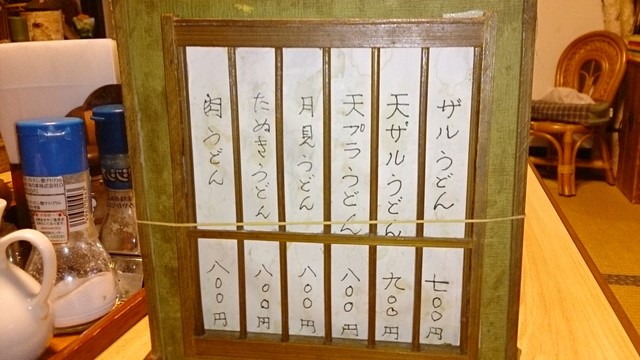 ザルうどん 七〇〇円
天ザルうどん 九〇〇円
天プラうどん 八〇〇円
月見うどん 八〇〇円
たぬきうどん 八〇〇円
肉うどん 八〇〇円